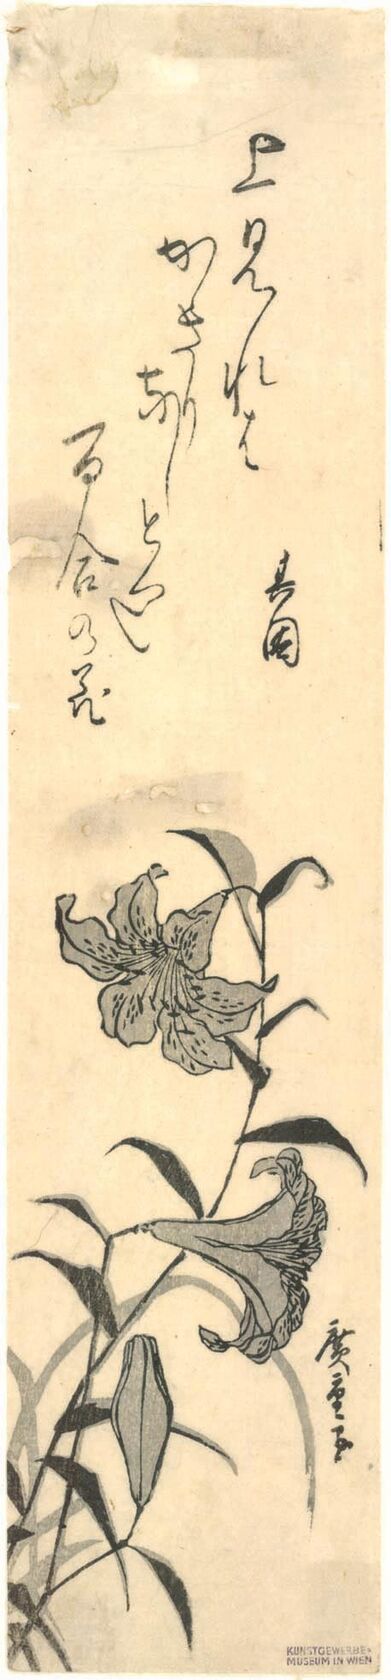 上見れは
かきりなしと
百合の花
廣重画
KUNSTGEWERBE-
MUSEUM IN WIEN